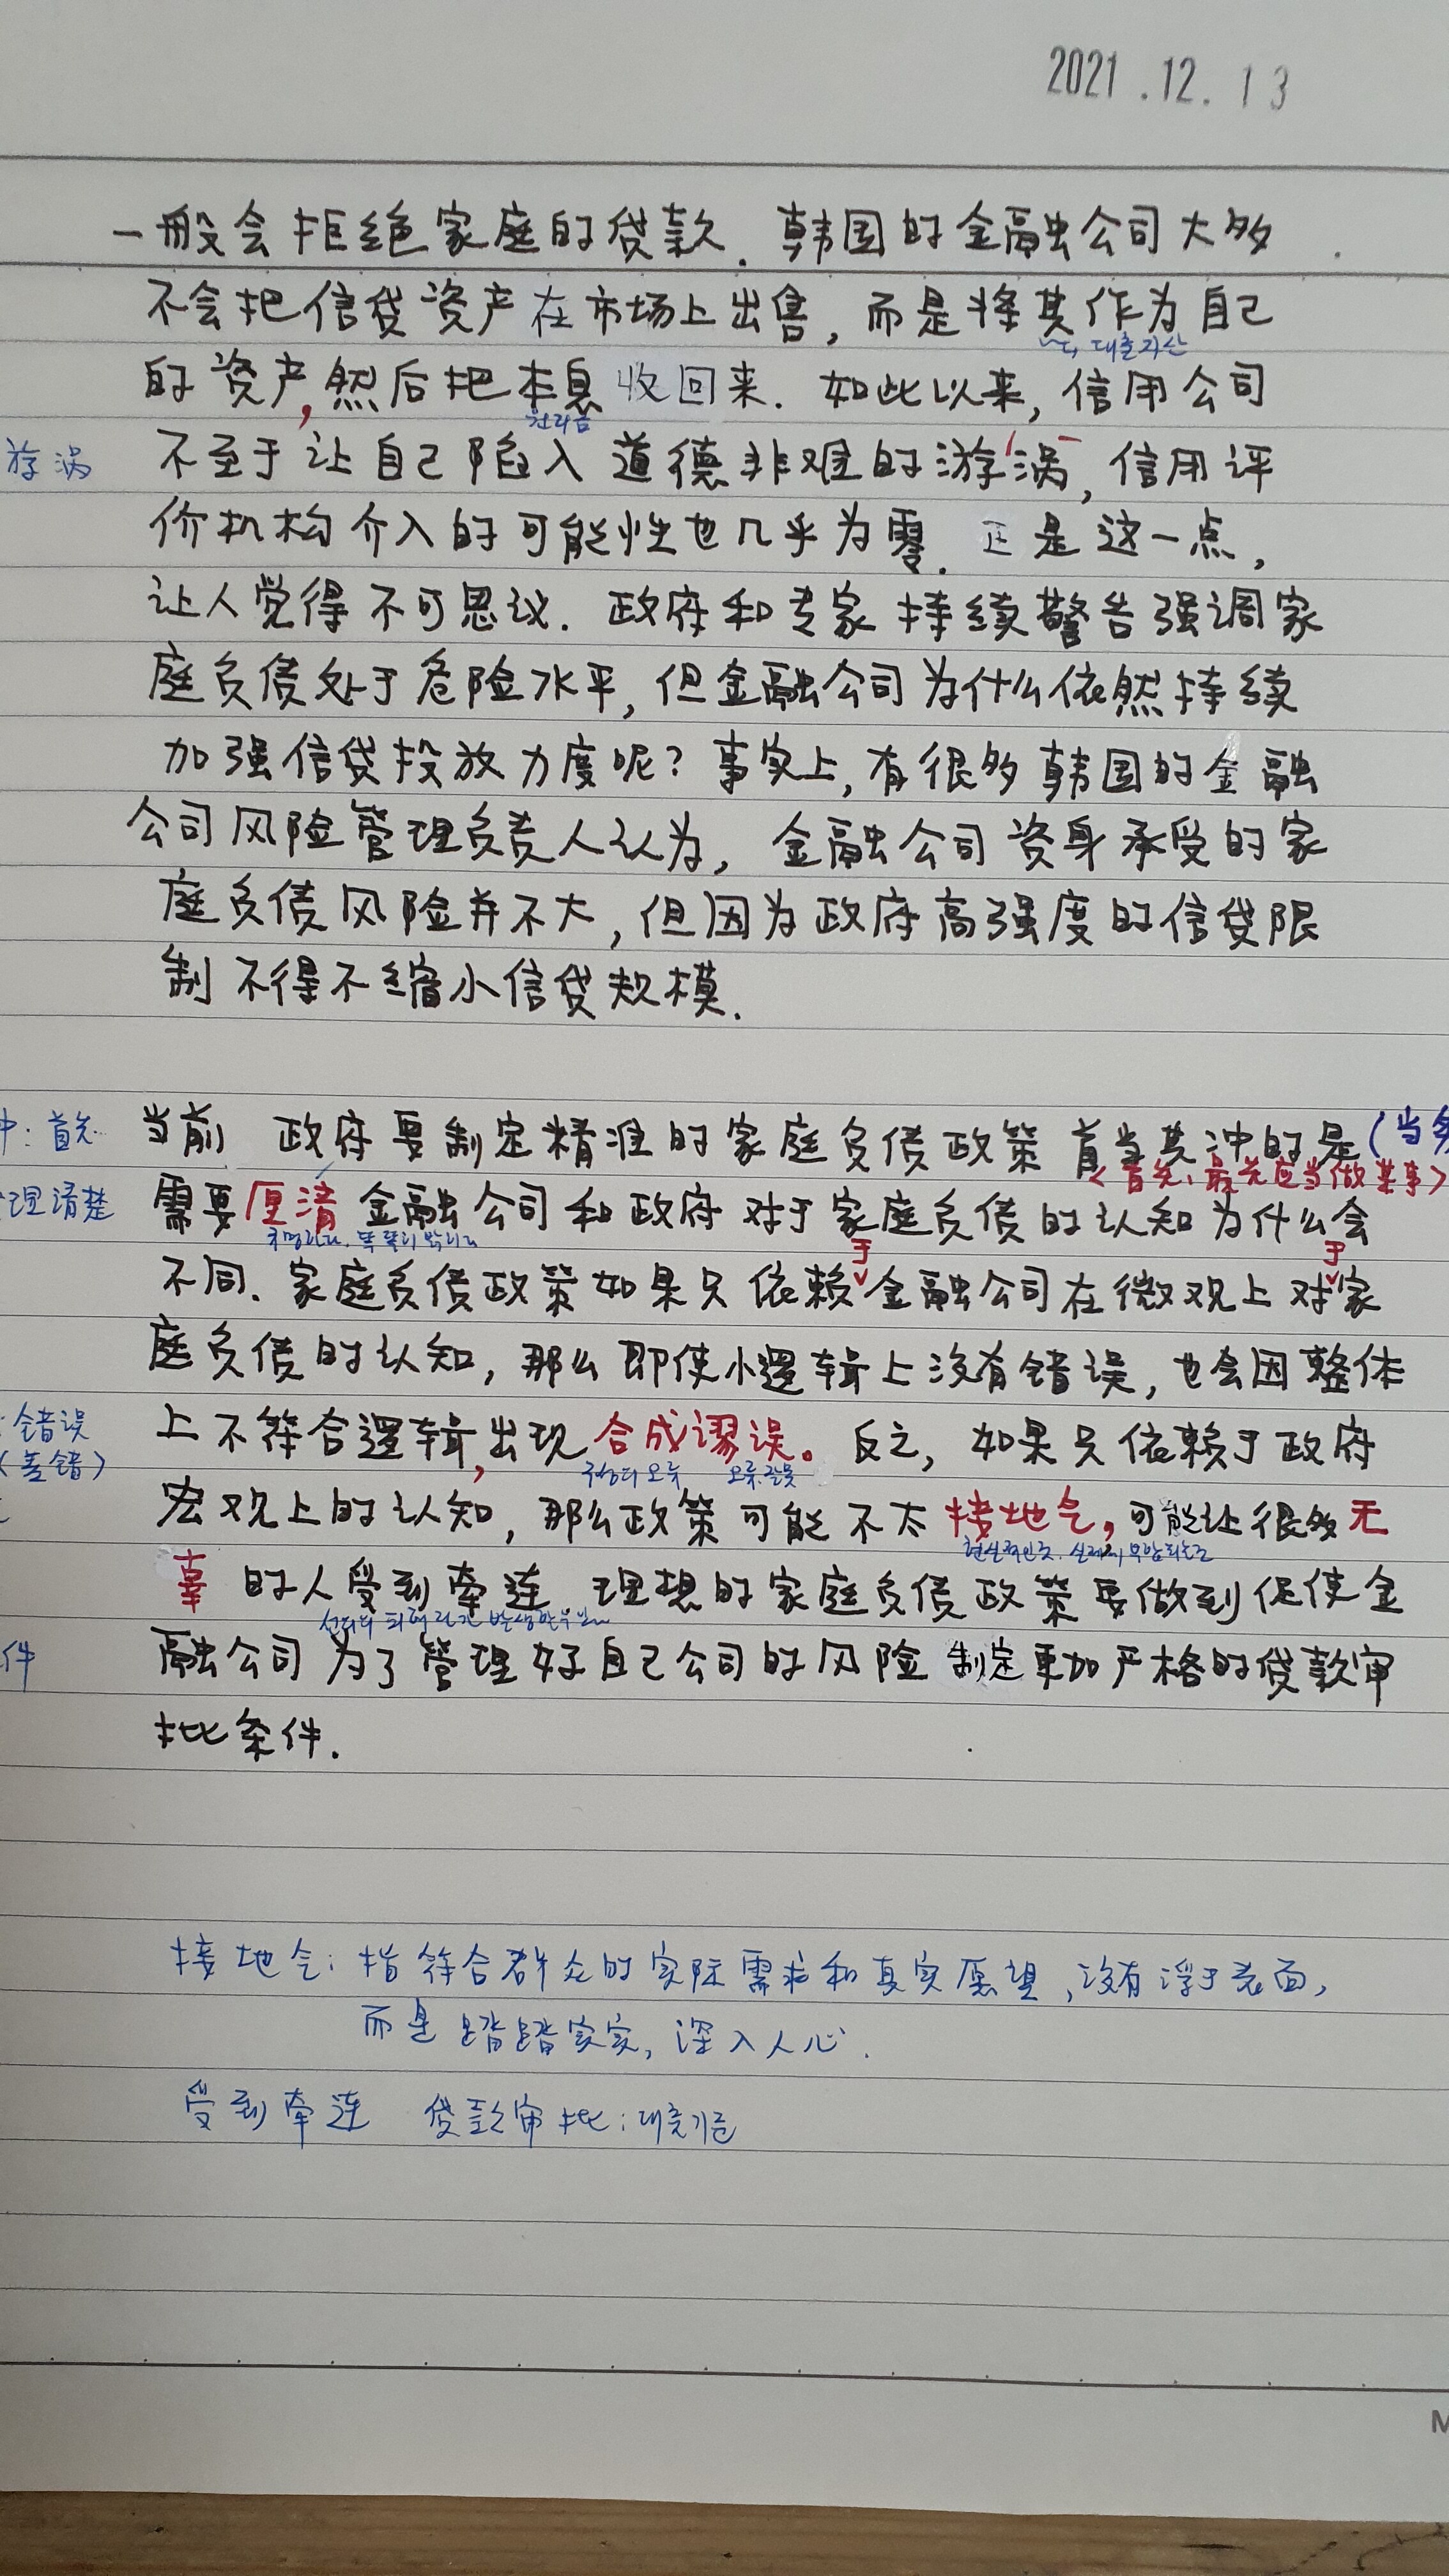 2021.12.13
一般会拒绝家庭的贷款. 韩国的金融公司大多
不会把信贷资产在市场上出售, 而是将其作为自己
대출자산
的资产, 然后把本息收回来. 如此以来, 信用公司
원리금
游涡 不至于让自己陷入道德非难的游涡, 信用评
价机构介入的可能性也几乎为零. 正是这一点,
让人觉得不可思议. 政府和专家持续警告强调家
庭负债处于危险水平, 但金融公司为什么依然持续
加强信贷投放力度呢? 事实上, 有很多韩国的金融
公司风险管理负责人认为, 金融公司资身承受的家
庭负债风险并不大, 但因为政府高强度的信贷限
制不得不缩小信贷规模.
冲: 首先 当前 政府要制定精准的家庭负债政策 首当其冲的是 (当务
<首先, 最先应当做某事>
理清楚 需要厘清金融公司和政府对于家庭负债的认知为什么会
규명하다, 똑똑히 밝히다
于 于
不同. 家庭负债政策如果只依赖金融公司在微观上对家
庭负债的认知, 那么即使小逻辑上没有错误, 也会因整体
: 错误 上不符合逻辑, 出现合成谬误。反之, 如果只依赖于政府
(差错) 구성의 오류 오류.잘못
宏观上的认知, 那么政策可能不太接地气, 可能让很多无
辜的人受到牵连 理想的家庭负债政策要做到促使金
件 融公司为了管理好自己公司的风险制定更加严格的贷款审
批条件.
接地气: 指符合群众的实际需求和真实愿望, 没有浮于表面,
而是踏踏实实, 深入人心.
受到牵连 贷款审批: 대출기준
M